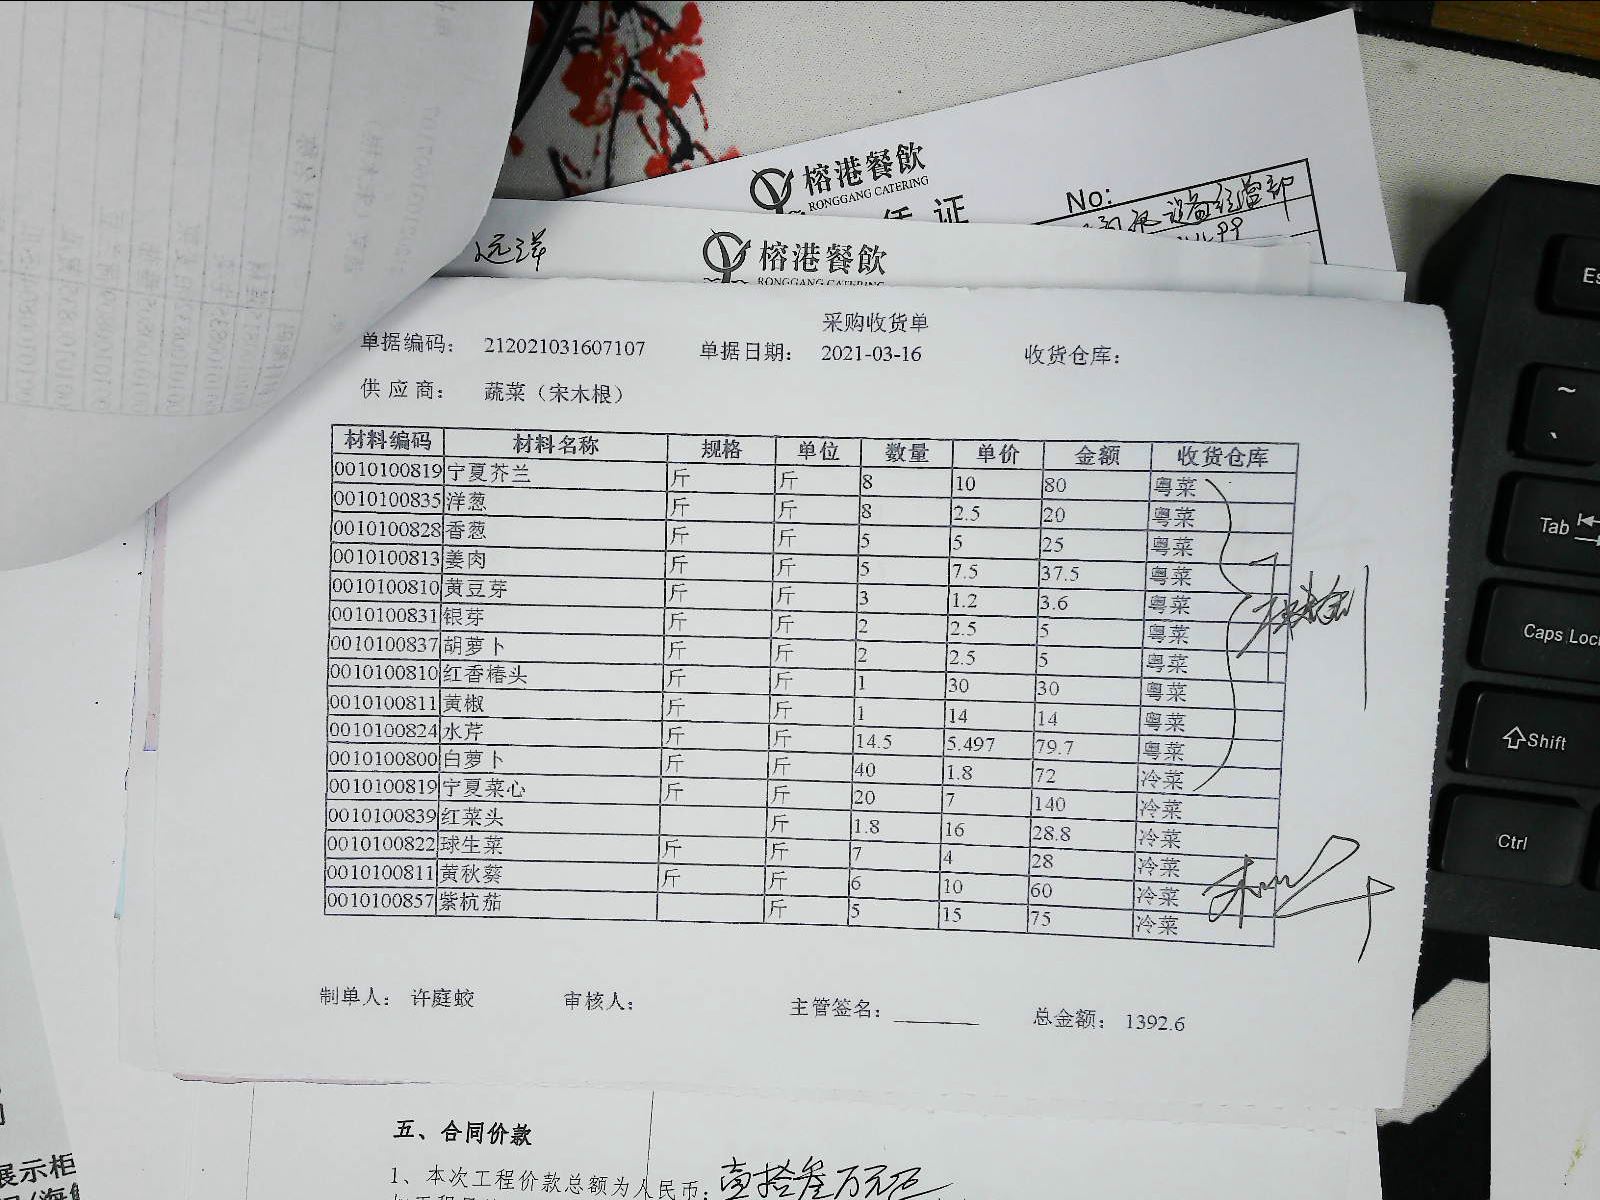 榕港餐飲
RONGGANG CATERING
证
No:
设备经营部
远洋
榕港餐飲
RONGGANG CATERING
采购收货单
单据编码： 212021031607107 单据日期： 2021-03-16 收货仓库：
供 应 商： 蔬菜（宋木根）
材料编码 材料名称 规格 单位 数量 单价 金额 收货仓库
0010100819 宁夏芥兰 斤 斤 8 10 80 粤菜
0010100835 洋葱 斤 斤 8 2.5 20 粤菜
0010100828 香葱 斤 斤 5 5 25 粤菜
0010100813 姜肉 斤 斤 5 7.5 37.5 粤菜
0010100810 黄豆芽 斤 斤 3 1.2 3.6 粤菜
0010100831 银芽 斤 斤 2 2.5 5 粤菜
0010100837 胡萝卜 斤 斤 2 2.5 5 粤菜
0010100810 红香椿头 斤 斤 1 30 30 粤菜
0010100811 黄椒 斤 斤 1 14 14 粤菜
0010100824 水芹 斤 斤 14.5 5.497 79.7 粤菜
0010100800 白萝卜 斤 斤 40 1.8 72 冷菜
0010100819 宁夏菜心 斤 斤 20 7 140 冷菜
0010100839 红菜头 斤 1.8 16 28.8 冷菜
0010100822 球生菜 斤 斤 7 4 28 冷菜
0010100811 黄秋葵 斤 斤 6 10 60 冷菜
0010100857 紫杭茄 斤 5 15 75 冷菜
制单人： 许庭蛟 审核人： 主管签名： 总金额： 1392.6
五、合同价款
1、本次工程价款总额为人民币：壹拾叁万元
展示柜
Tab
Caps Loc
Shift
Ctrl